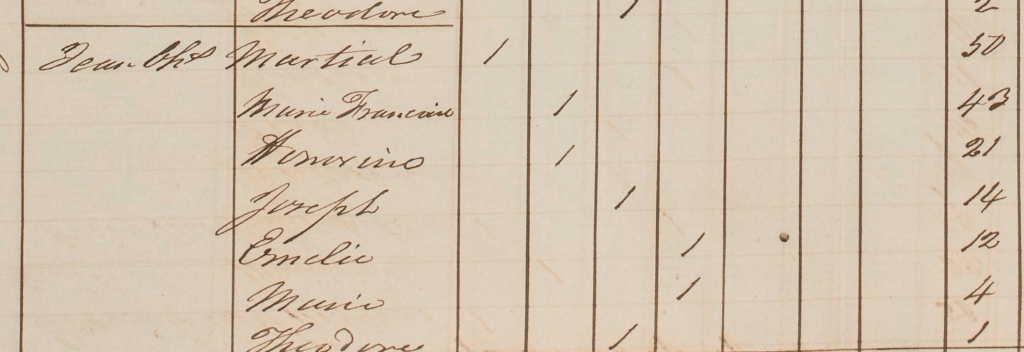 Theodore 1 2
Martial 1 50
Marie Francoise 1 43
Honorine 1 21
Joseph 1 14
Emelie 1 12
Marie 1 4
Theodore 1 1